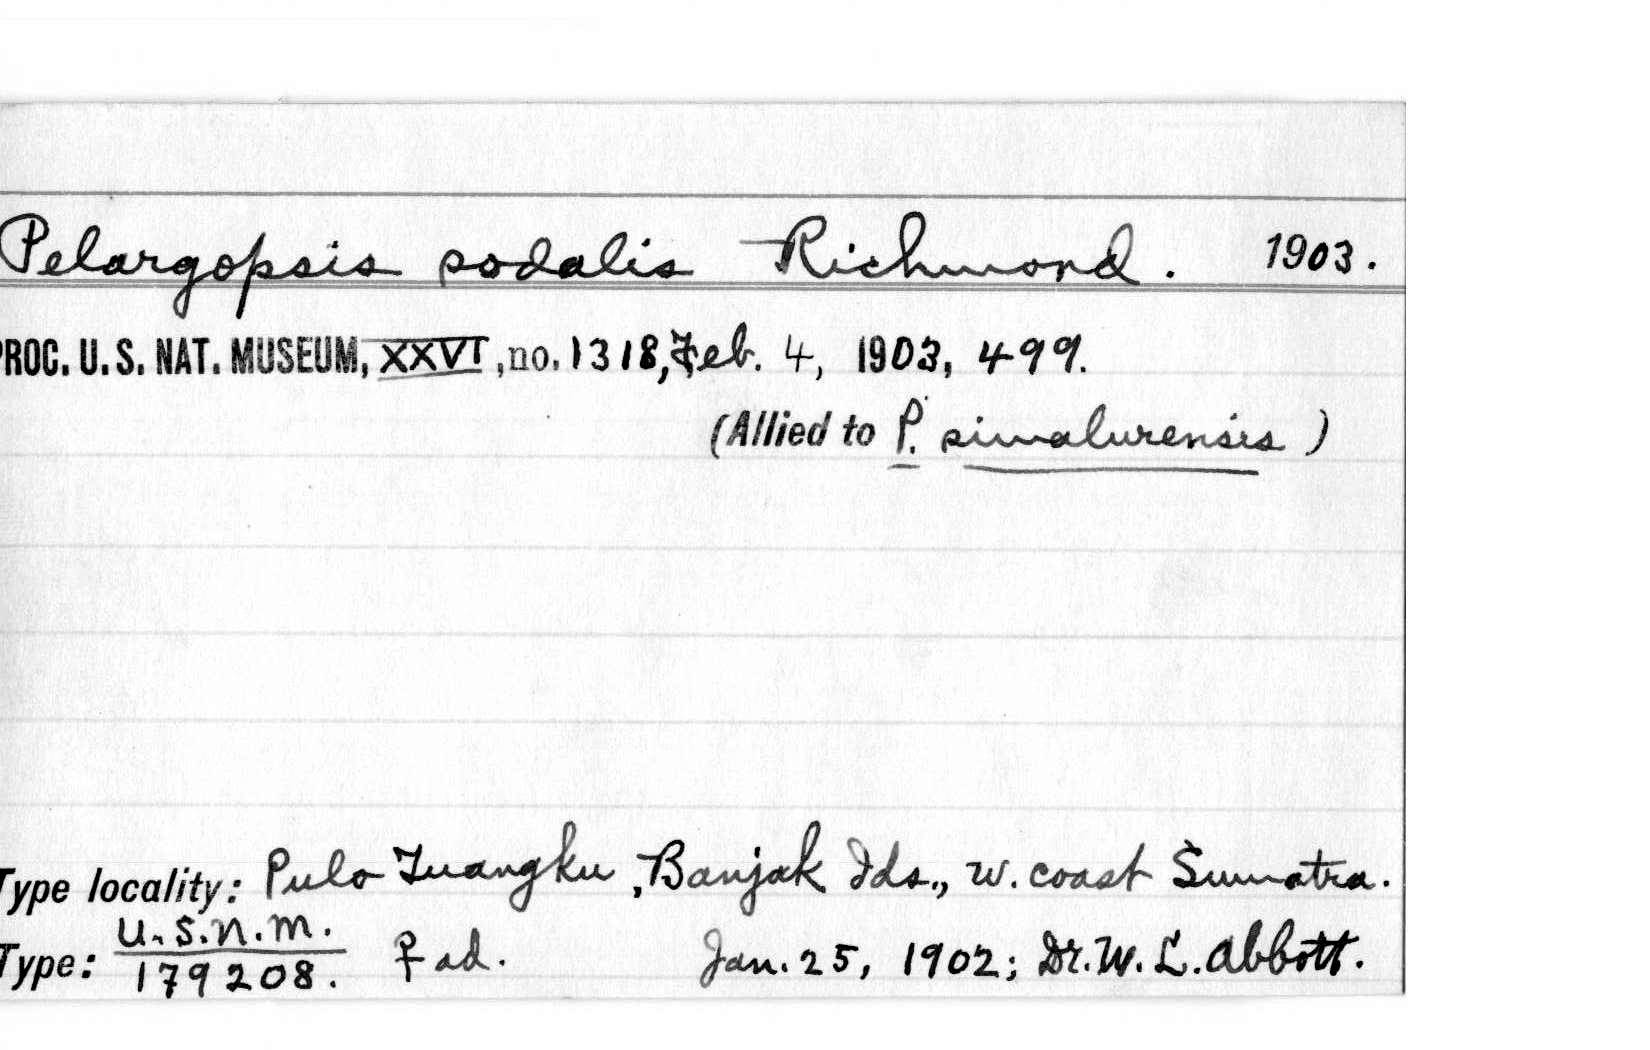 Pelargopsis sodalis Richmond. 1903.
PROC. U.S. NAT. MUSEUM, XXVI, no. 1318, Feb. 4, 1903, 499.
(Allied to P. simalurensis)
Type locality: Pulo Tuangku, Banjak Ids., w. coast Sumatra.
Type: U.S.N.M. 179208. ♀ ad. Jan. 25, 1902; Dr. W. L. Abbott.